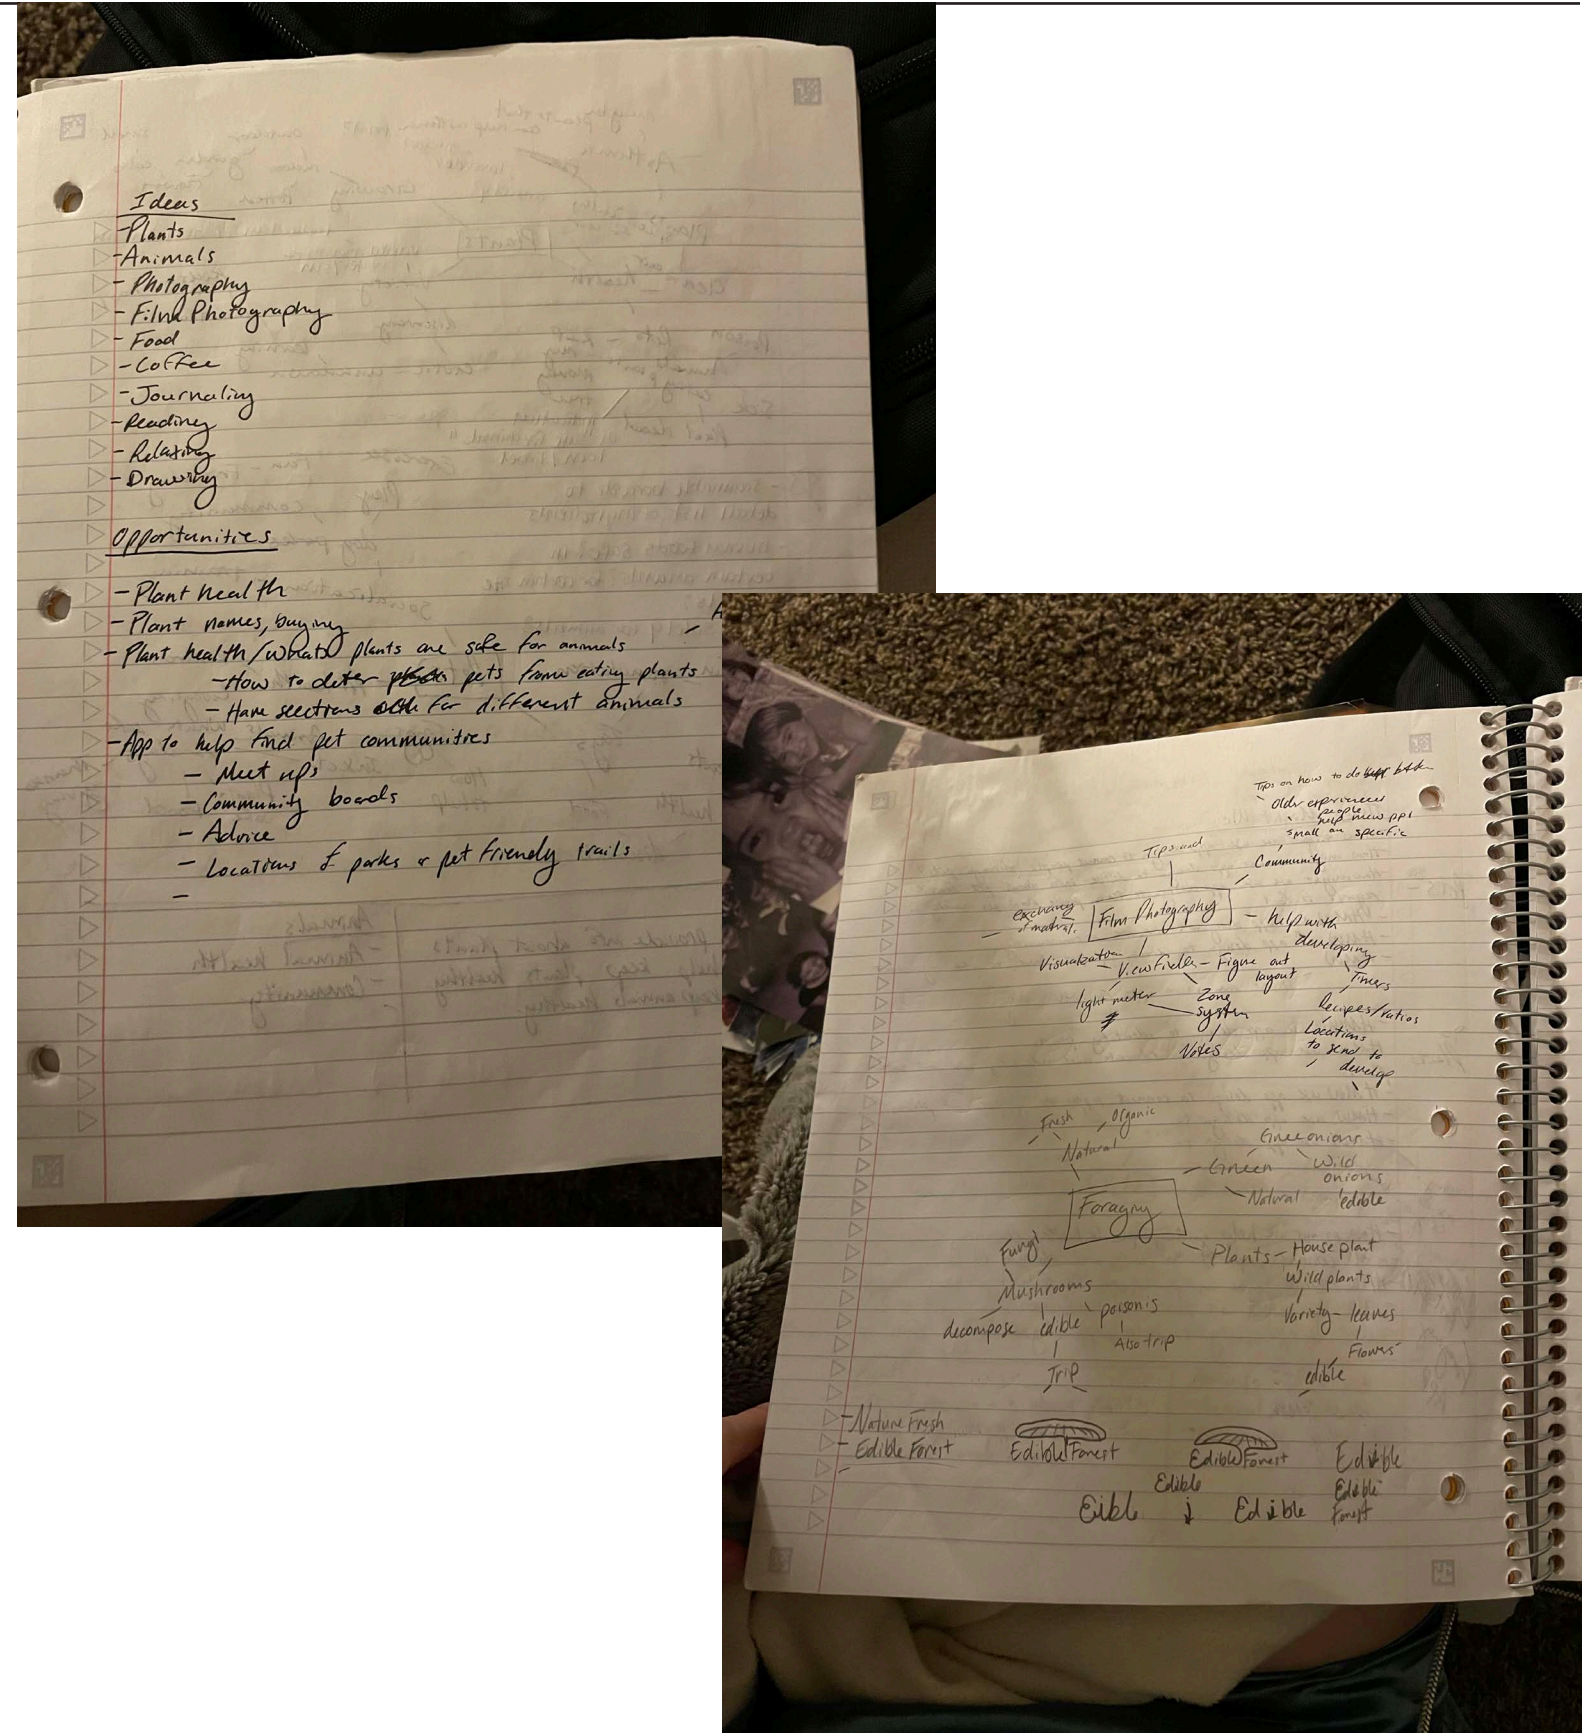 Ideas
-Plants
-Animals
- Photography
- Film Photography
- Food
- Coffee
- Journaling
- Reading
- Relaxing
- Drawing
Opportunities
- Plant health
- Plant names, buying
- Plant health/what plants are safe for animals
- How to deter pets from eating plants
- Have sections for different animals
- App to help find pet communities
- Meet ups
- Community boards
- Advice
- Locations of parks or pet friendly trails
-
Tips on how to do
older experienced
people
help new ppl
small or specific
Tips and
Community
exchang
of matrial.
Film Photography
- help with
developing
Visualization
- Viewfinder - Figure out
layout
Timers
light meter
Zone
system
Recipes/ratios
Notes
Locations
to send to
develop
Fresh
Organic
Natural
Green onions
- Green
Wild
onions
Natural
edible
Foraging
Fungi
Plants - House plant
Mushrooms
Wild plants
decompose
edible
poisonis
Variety - leaves
Also trip
Flowers
Trip
edible
- Nature Fresh
- Edible Forest
Edible Forest
Edible Forest
Edible
Edible
Edible
Forest
Eible
Edible